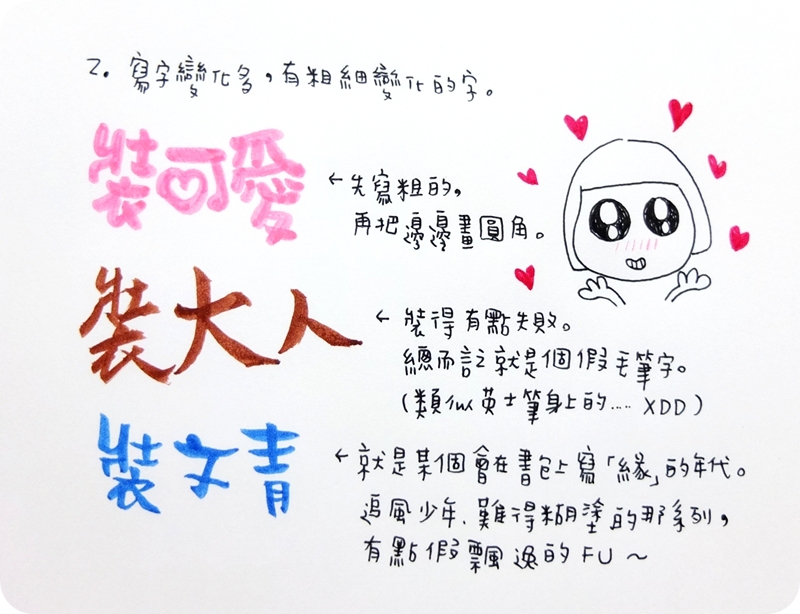 2. 寫字變化多，有粗細變化的字。
裝可愛
←先寫粗的，
再把邊邊畫圓角。
裝大人
← 裝得有點失敗。
總而言之就是個假毛筆字。
(類似英士筆身上的..... XDD)
裝文青
←就是某個會在書包上寫「緣」的年代。
追風少年、難得糊塗的那系列，
有點假飄逸的 FU～